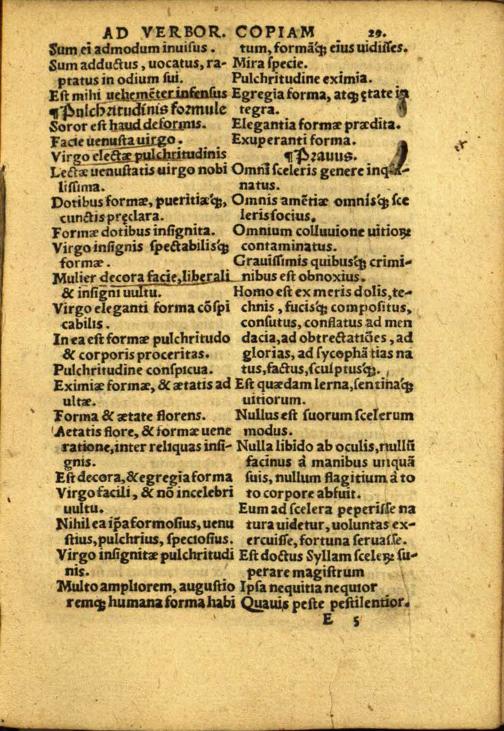 AD VERBOR. COPIAM 29.
Sum ei admodum inuisus.
Sum adductus, uocatus, ra-
ptatus in odium sui.
Est mihi uehemẽter infensus
¶Pulchritudinis formule
Soror est haud deformis.
Facie uenusta uirgo.
Virgo electæ pulchritudinis
Lectæ uenustatis uirgo nobi
lissima.
Dotibus formæ, pueritiæqꝫ,
cunctis pręclara.
Formæ dotibus insignita.
Virgo insignis spectabilisqꝫ
formæ.
Mulier decora facie, liberali
& insigni uultu.
Virgo eleganti forma cõspi
cabilis.
In ea est formæ pulchritudo
& corporis proceritas.
Pulchritudine conspicua.
Eximiæ formæ, & ætatis ad
ultæ.
Forma & ætate florens.
Aetatis flore, & formæ uene
ratione, inter reliquas insi-
gnis.
Est decora, & egregia forma
Virgo facili, & nõ incelebri
uultu.
Nihil ea ip̃a formosius, uenu
stius, pulchrius, speciosius.
Virgo insignitæ pulchritudi
nis.
Multo ampliorem, augustio
remqꝫ humana forma habi
tum, formãqꝫ eius uidisses.
Mira specie.
Pulchritudine eximia.
Egregia forma, atqꝫ ętate in
tegra.
Elegantia formæ prædita.
Exuperanti forma.
¶Prauus.
Omni sceleris genere inqui-
natus.
Omnis amẽtiæ omnisqꝫ sce
leris socius.
Omnium colluuione uitioꝝ
contaminatus.
Grauissimis quibusqꝫ crimi-
nibus est obnoxius.
Homo est ex meris dolis, te-
chnis, fucisqꝫ compositus,
consutus, conflatus ad men
dacia, ad obtrectatiões, ad
glorias, ad sycophãtias na
tus, factus, sculptusqꝫ.
Est quædam lerna, sentinaqꝫ
uitiorum.
Nullus est suorum scelerum
modus.
Nulla libido ab oculis, nullũ
facinus à manibus unquã
suis, nullum flagitium à to
to corpore abfuit.
Eum ad scelera peperisse na
tura uidetur, uoluntas ex-
ercuisse, fortuna seruasse.
Est doctus Syllam sceleꝝ su-
perare magistrum
Ipsa nequitia nequior
Quauis peste pestilentior.
E 5